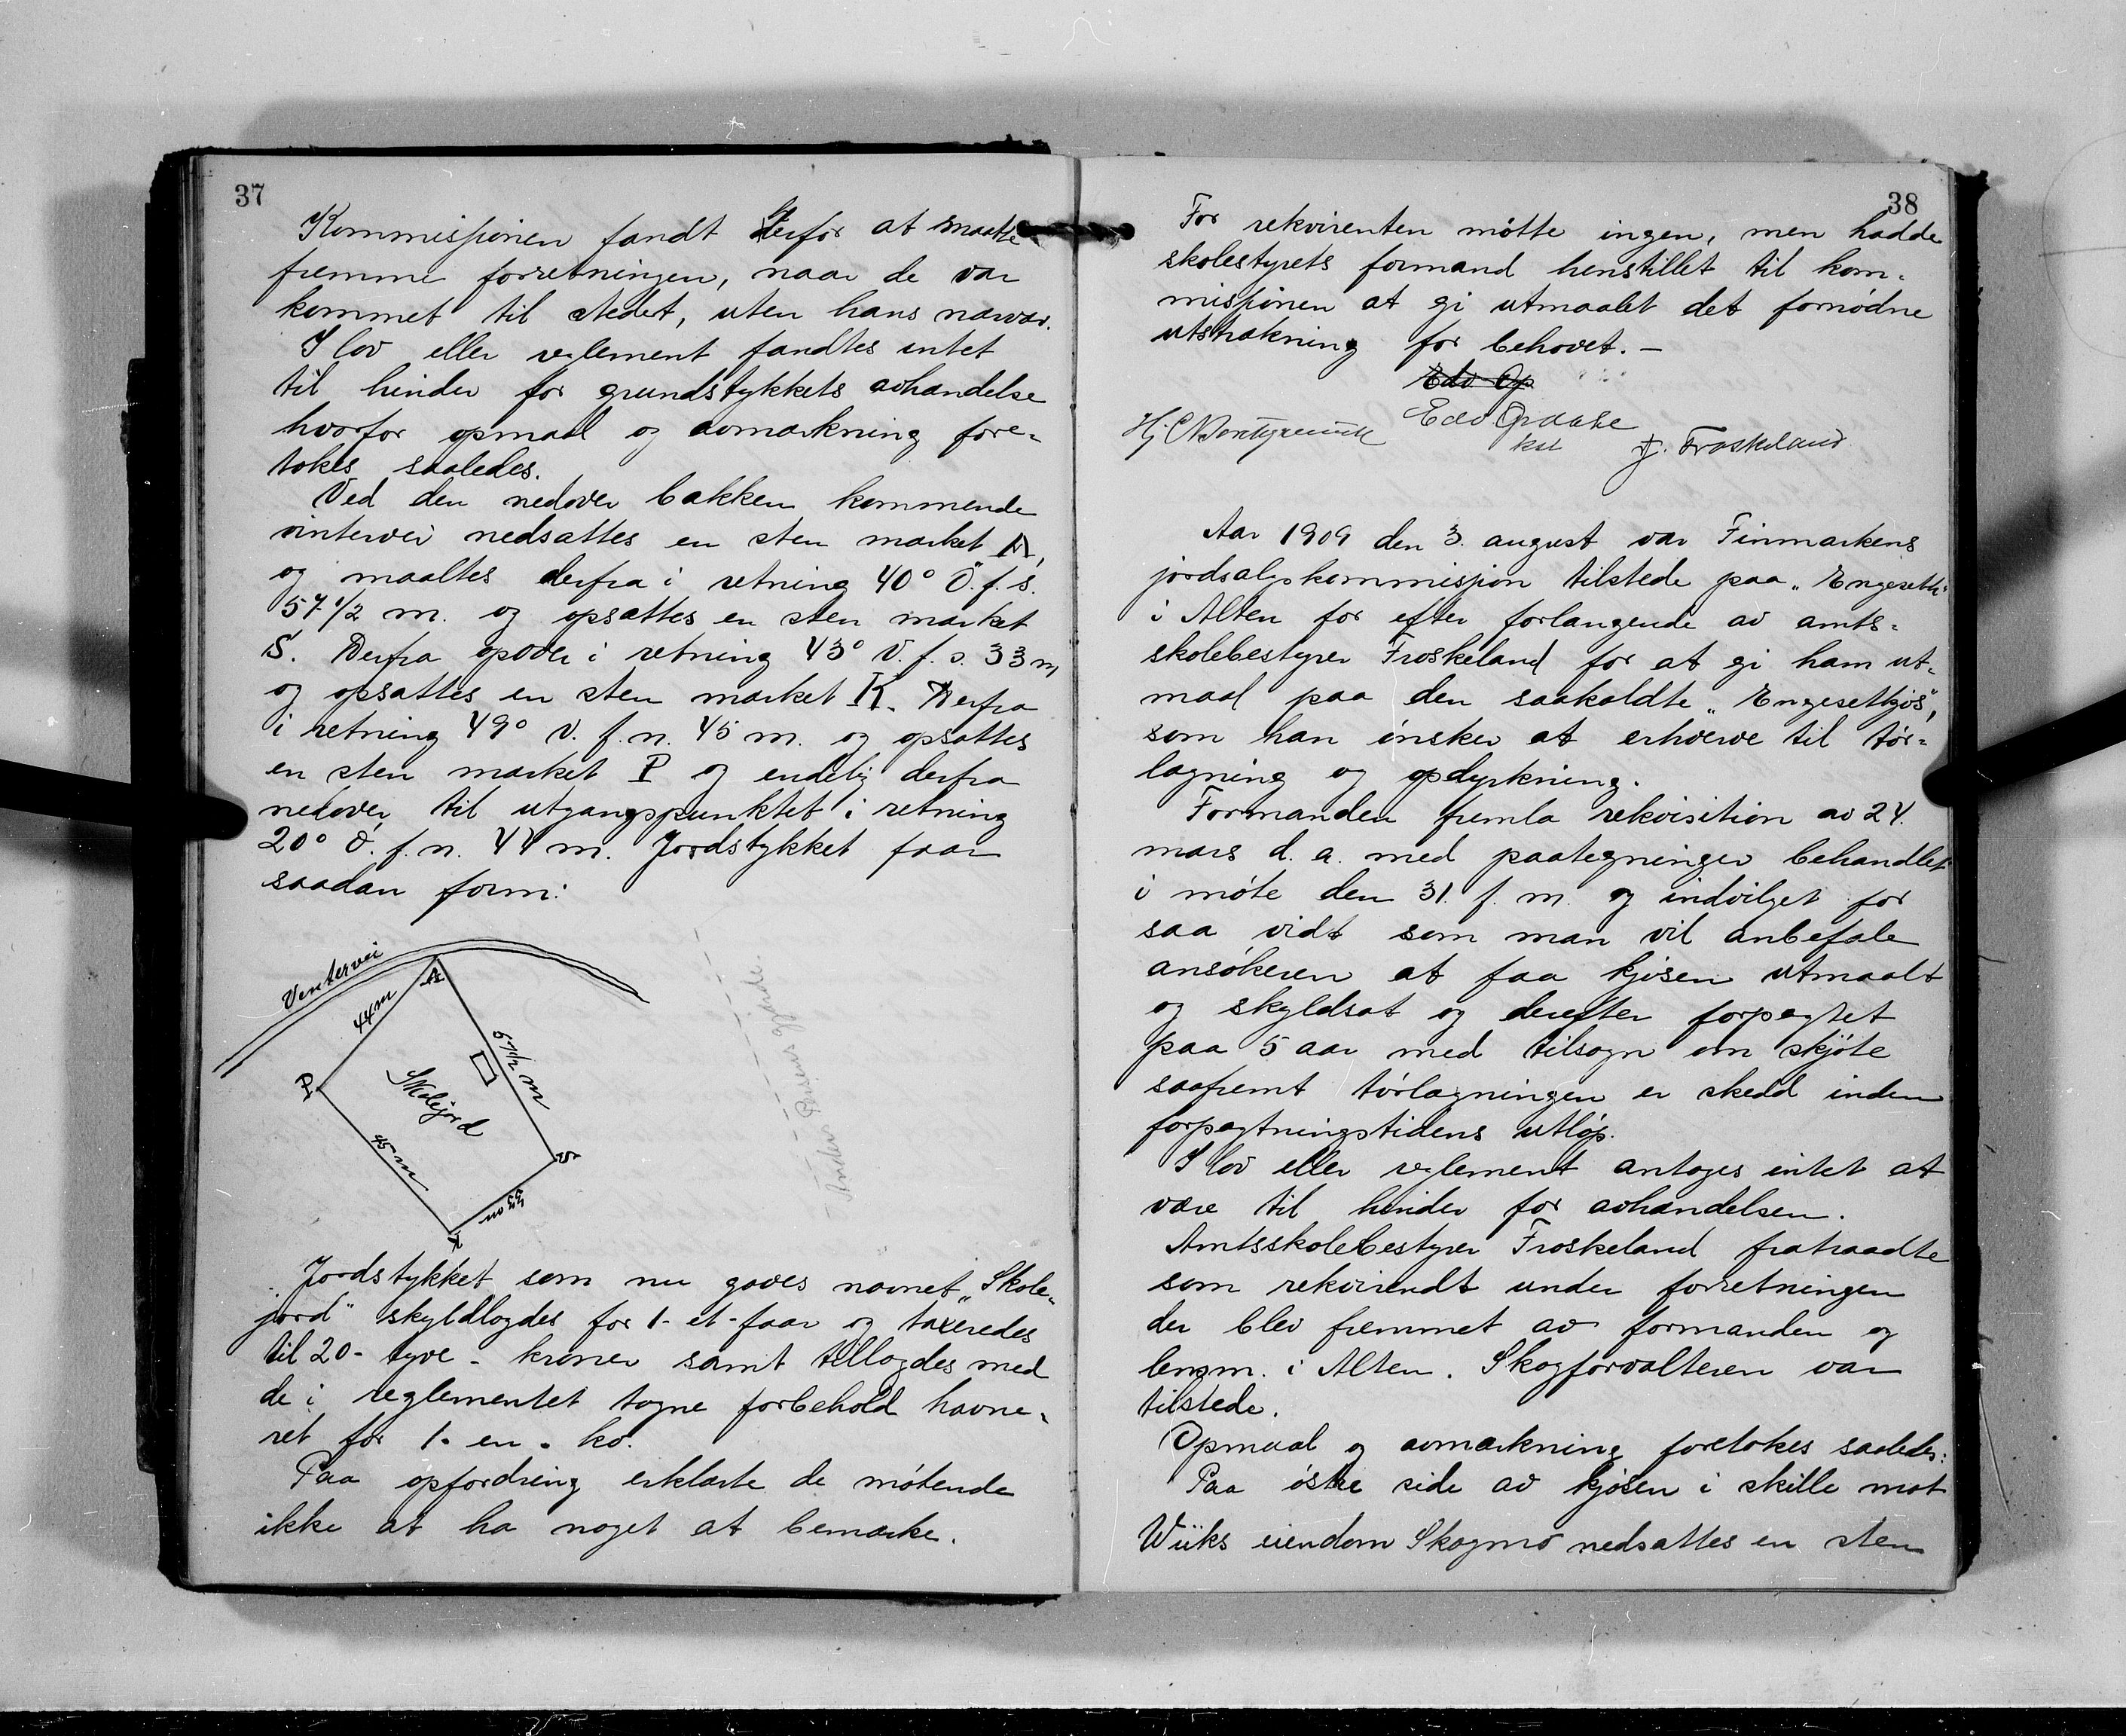 37
Kommissjonen fandt derfor at maatte
fremme forretningen, naar de var
kommet til stedet, uten hans nærvær.
I lov eller reglement fandtes intet
til hinder for grundstykkets avhændelse
hvorfor opmaal og avmærkning fore-
tokes saaledes.
Ved den nedover bakken kommende
vintervei nedsattes en sten mærket A,
og maaltes derfra i retning 40° Ö. f. s.
57 1/2 m. og opsattes en sten mærket
S. Derfra opover i retning 43° V. f. s. 33 m
og opsattes en sten mærket K. Derfra
i retning 49° v. f. n. 45 m. og opsattes
en sten mærket P og endelig derfra
nedover til utgangspunktet i retning
20° ö. f. n. 44 m. Jordstykket faar
saadan form:
Vintervei
A
44 m
57 1/2 m
P
Skolejord
45 m
S
33 m
K
Jordstykket som nu gaves navnet "Skole-
jord" skyldlagdes for 1- et - faar og taxeredes
til 20 - tyve - kroner samt tillagdes med
de i reglementet tagne forbehold havne-
ret for 1 - en - ko.
Paa opfordring erklærte de mötende
ikke at ha noget at bemærke.
38
For rekvirenten mötte ingen, men hadde
skolestyrets formand henstillet til kom-
missjonen at gi utmaalet det fornödne
utstrækning for behovet. -
Edv. Op
Edv Opdahl
kst
J. Froskeland
Aar 1909 den 3. august var Finmarkens
jordsalgskommissjon tilstede paa "Engeseth"
i Alten for efter forlangende av amts-
skolebestyrer Froskeland for at gi ham ut-
maal paa den saakaldte "Engesetkjos",
som han önsker at erhverve til tör-
lægning og opdyrkning.
Formanden fremla rekvisition av 24.
mars d. a. med paategninger behandlet
i möte den 31. f. m. og indvilget for
saa vidt som man vil anbefale
ansökeren at faa kjosen utmaalt
og skyldsat og derefter forpagtet
paa 5 aar med tilsagn om skjöte
saafremt törlægningen er skedd inden
forpagtningstidens utlöp.
I lov eller reglement antages intet at
være til hinder for avhændelsen.
Amtsskolebestyrer Froskeland fratraadte
som rekvirendt under forretningen
der blev fremmet av formanden og
lensm. i Alten. Skogforvalteren var
tilstede.
Opmaal og avmærkning foretokes saaledes:
Paa östre side av kjosen i skille mot
Wiiks eiendom Skogmo nedsattes en sten